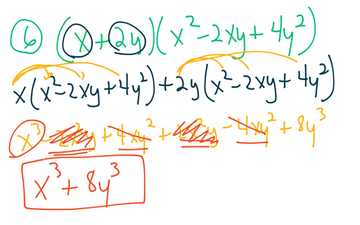 6 (x+2y)(x²-2xy+4y²)
x(x²-2xy+4y²)+2y(x²-2xy+4y²)
x³ - + 4xy² + - 4xy² + 8y³
x³ + 8y³